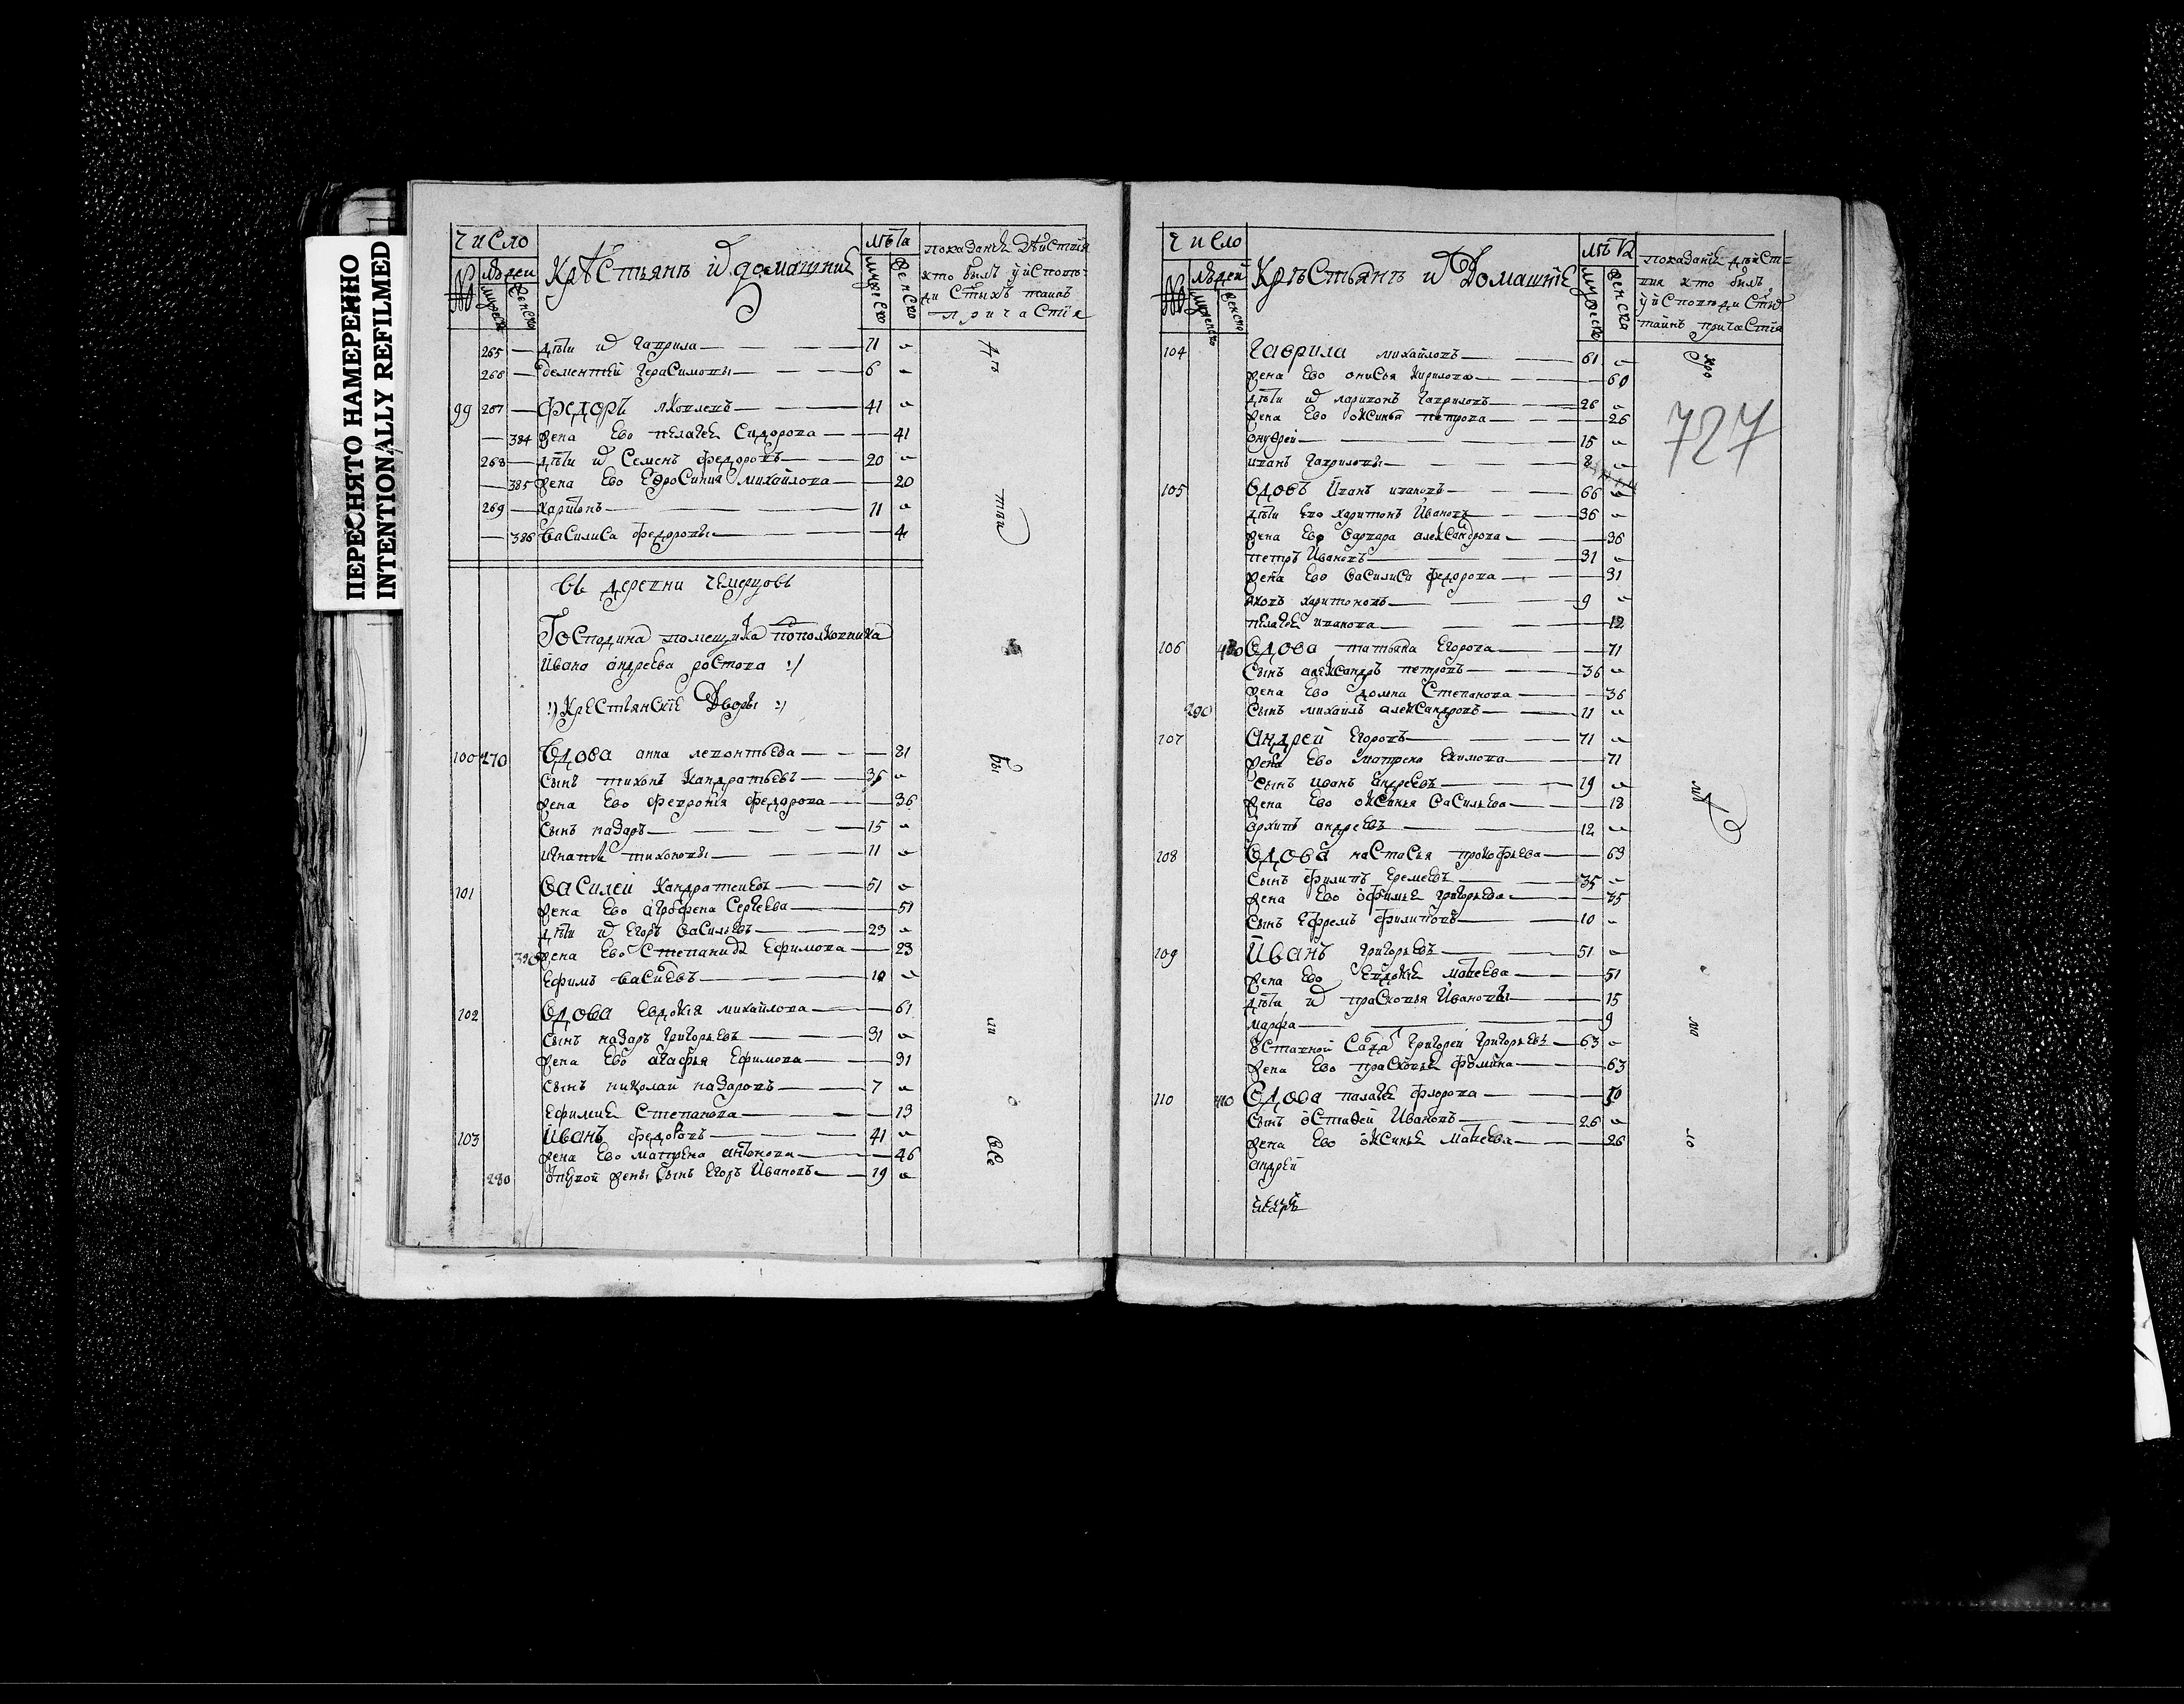 ПЕРЕСНЯТО НАМЕРЕННО
INTENTIONALLY REFILMED
Число
людей
Крестьянъ и домашние
лѣта
мужеско
женско
показание дѣиствия
кто былъ у исповѣ-
ди стыхъ таинъ
причастия
265 — дѣти их Гаврила — 11
266 — дементей Герасимовы — 6
99 267 — Федоръ яковлевъ — 41
— 384 жена ево пелагея Сидорова — 41
268 — дѣти их Семенъ федоровъ — 20
— 385 жена ево Ефросиния михайлова — 20
269 — харитонъ — 11
— 386 василиса федоровы — 4
въ деревни
Господина помещика
Ивана андреева ростова :/
:/ Крестьянские Дворы :/
100 270 Вдова анна леонтьева — 81
сынъ тихонъ кандратьевъ — 36
жена ево феврония федорова — 36
сынъ назаръ — 15
игнатей тихоновы — 11
101 василей кандратьевъ — 51
жена ево агрофена Сергеева — 51
дѣти их егоръ васильевъ — 23
390 жена ево Степанида Ефимова — 23
Ефимъ — 10
102 Вдова евдокия михайлова — 61
сынъ назаръ григорьевъ — 31
жена ево агафья Ефимова — 31
сынъ николай назаровъ — 7
Ефимия Степанова — 13
103 Иванъ федоровъ — 41
жена ево матрена антонова — 46
280 жены сынъ Егоръ Ивановъ — 19
Число
людей
Крѣстьянъ и Домашние
лѣта
мужеско
женско
показание дѣйст-
вия кто былъ
у исповѣди стыхъ
таинъ причастия
104 Гаврила михайловъ — 61
жена ево анисья кирилова — 60
дѣти их ларионъ Гавриловъ — 26
жена ево аксинья петрова — 26
онуфрей — 15
иванъ Гавриловы — 8
727
105 Вдовъ Иванъ ивановъ — 66
дѣти ево харитонъ Ивановъ — 36
жена ево варвара александрова — 36
петръ Ивановъ — 31
жена ево василиса федорова — 31
яковъ харитоновъ — 9
пелагея иванова — 12
106 400 Вдова татьяна Егорова — 71
сынъ александръ петровъ — 36
жена ево домна Степанова — 36
290 сынъ михаилъ александровъ — 11
107 Андрей Егоровъ — 71
жена ево матрена екимова — 71
сынъ иванъ андреевъ — 19
жена ево аксинья васильева — 18
архипъ андреевъ — 12
108 Вдова настасья прокофьева — 69
сынъ филипъ еремеевъ — 35
жена ево офимья григорьева — 35
сынъ Ефремъ филиповъ — 10
109 Иванъ григорьевъ — 51
жена ево евдокия матвеева — 51
дѣти их прасковья Ивановы — 15
марфа — 9
Григорей григорьевъ — 63
жена ево прасковья фомина — 63
110 410 Вдова палагея фролова — 50
сынъ остафей Ивановъ — 26
жена ево оксинья матвеева — 26
андрей